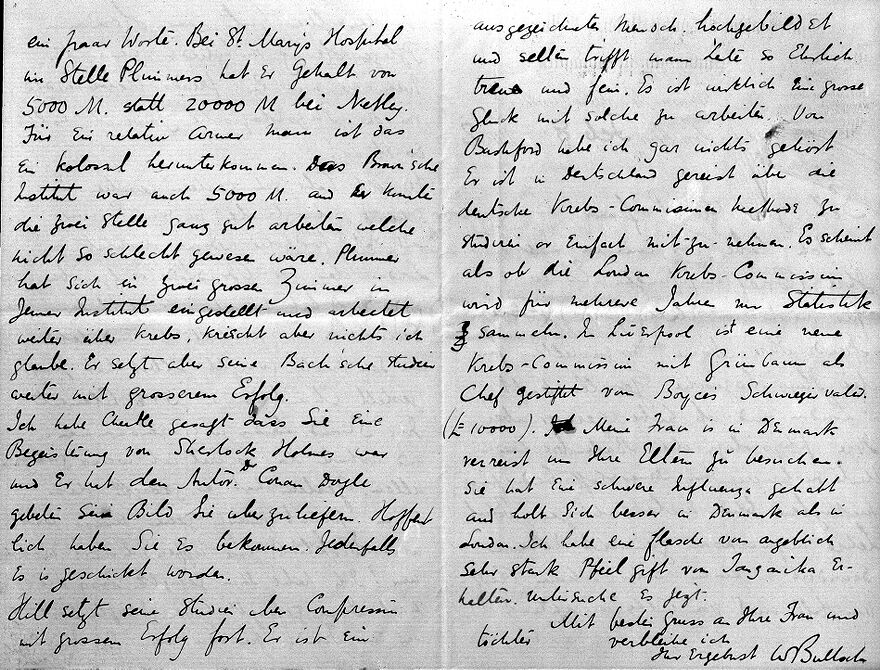 ein paar Worte. Bei St. Mary's Hospital
im Stelle Plimmers hat Er Gehalt von
5000 M. statt 20000 M bei Netley.
Für Ein relativ Armer Mann ist das
Ein kolossal herunterkommen. Das Brown'sche
Institut war auch 5000 M. und Er konnte
die zwei Stelle ganz gut arbeiten welche
nicht so schlecht gewesen wäre. Plimmer
hat sich in zwei grossen Zimmer in
Jenner Institut eingestellt und arbeitet
weiter über Krebs, kriecht aber nichts ich
glaube. Er setzt aber seine Bact'sche studien
weiter mit grosserem Erfolg.
Ich habe Cheatle gesagt dass Sie Eine
Begeisterung von Sherlock Holmes war
und Er hat den Autor. Dr Conan Doyle
gebeten Sein Bild Sie uberzuliefern. Hoffent
lich haben Sie Es bekommen. Jedenfalls
Es is geschickt worden.
Hill setzt seine Studien über Compression
mit grossem Erfolg fort. Er ist Ein
ausgezeichneter Mensch. hochgebildet
und selten trifft mann Leute so Ehrlich
treue und fein. Es ist wirklich Eine grosse
Glück mit solche zu arbeiten. Von
Bashford habe ich gar nichts gehört
Er ist in Deutschland gereist über die
deutsche Krebs-Commissionen Methode zu
studiren or Einfach mit-zu-nehmen. Es scheint
als ob die London Krebs-Commission
wird für mehrere Jahren nur Statistik
z sammeln. In Liverpool ist eine neue
Krebs-Commission mit Grünbaum als
Chef gestiftet von Boyces Schwiegervater.
(£ 10000). Meine Frau is in Denmark
verreist um Ihre Eltern zu besuchen.
Sie hat Ein schwere Influenza gehabt
und holt Sich besser in Denmark als in
London. Ich habe eine flasche von angeblich
Sehr stark Pfeil gift von Tanganika Er-
halten. Untersuche Es jezt.
Mit besten Gruss an Ihre Frau und
töchter verbleibe ich
Ihr Ergebenst W Bulloch